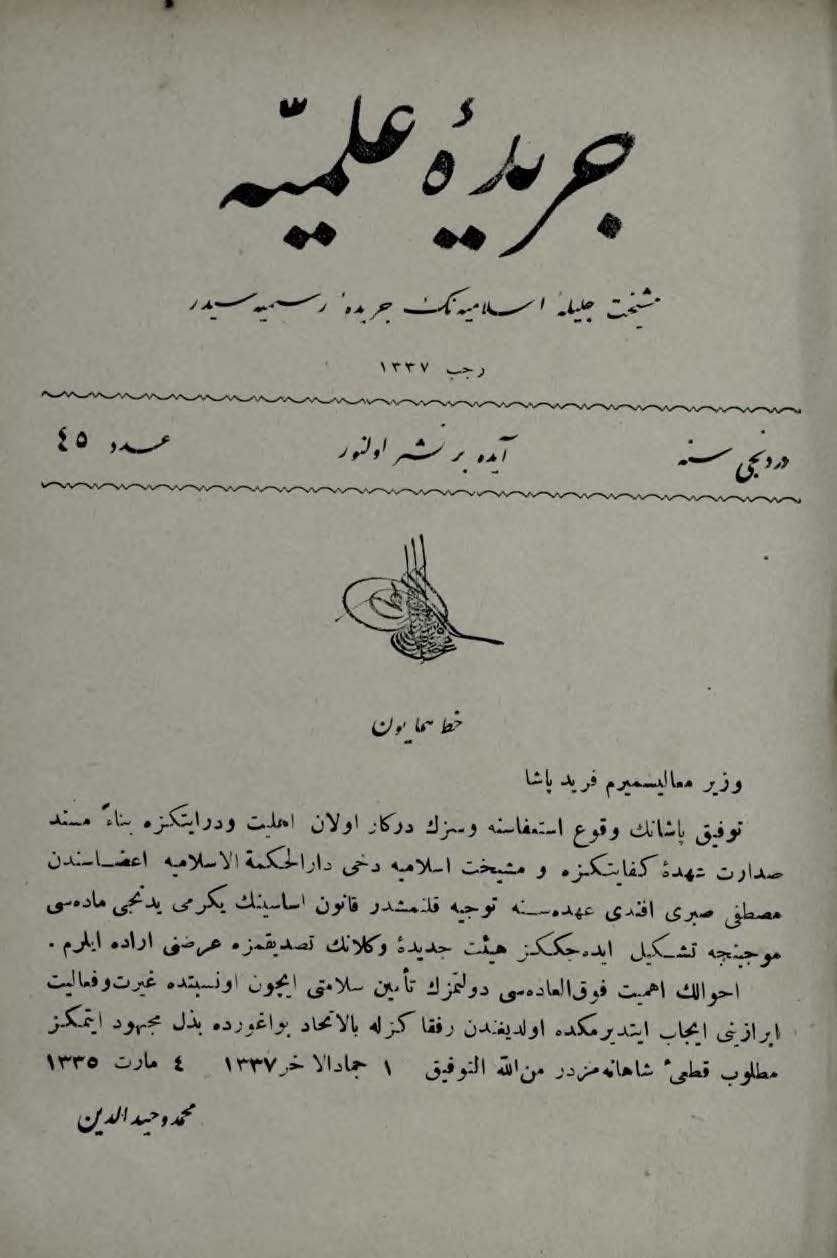 جريدهٔ علميّه
مشيخت جليلهٔ اسلاميه‌نك جريدهٔ رسميه‌سيدر
رجب ١٣٣٧
دردنجی سنه
آيده بر نشر اولنور
عدد ٤٥
خط همايون
وزير معاليسميرم فريد پاشا
توفيق پاشانك وقوع استعفاسنه وسزك دركار اولان اهليت ودرايتكزه بناءً مسند
صدارت عهدهٔ كفايتكزه و مشيخت اسلاميه دخی دارالحكمة الاسلاميه اعضاسندن
مصطفی صبری افندی عهده‌سنه توجيه قلنمشدر قانون اساسينك يكرمی يدنجی ماده‌سی
موجبنجه تشكيل ايده‌جككز هيئت جديدهٔ وكلانك تصديقمزه عرضنی اراده ايلرم .
احوالك اهميت فوق‌العاده‌سی دولتمزك تأمين سلامتی ايچون اونسبتده غيرت وفعاليت
ابرازينی ايجاب ايتديرمكده اولديغندن رفقا كزله بالاتحاد بواغورده بذل مجهود ايتمكز
مطلوب قطعیٔ شاهانه‌مزدر من‌الله التوفيق ١ جمادالاخر ١٣٣٧ ٤ مارت ١٣٣٥
محمد وحيدالدين